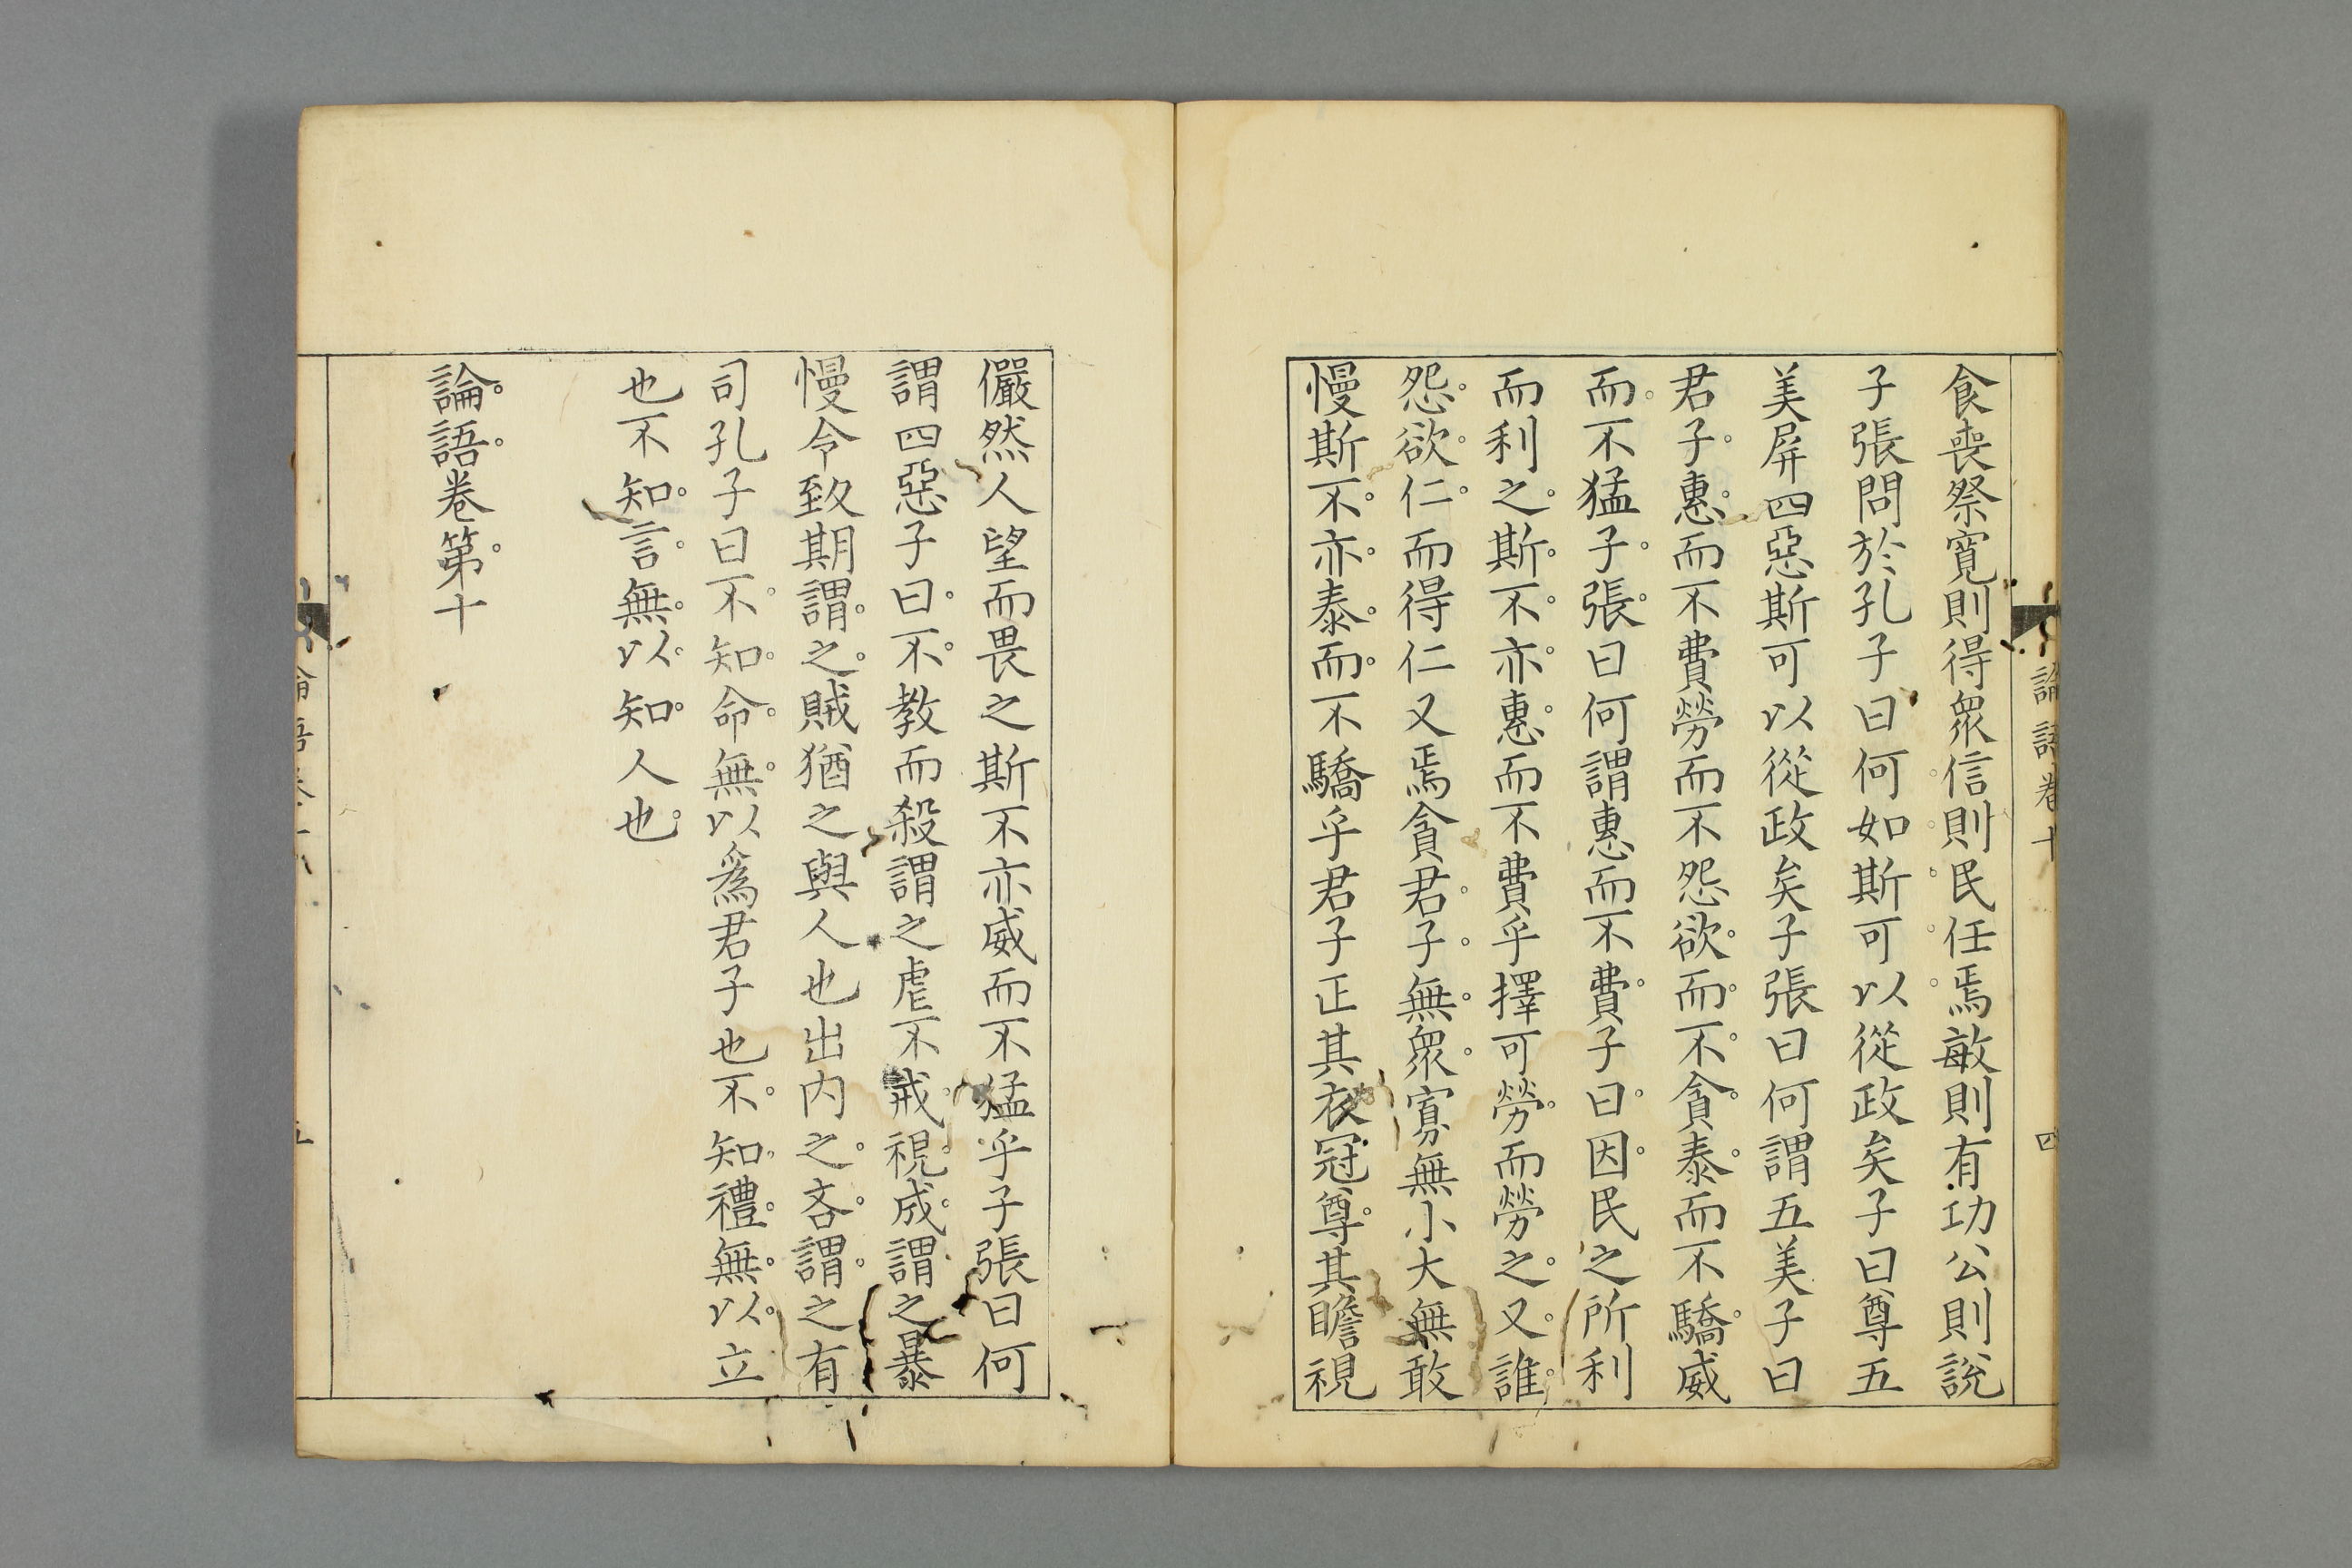 論語卷十
四
食喪祭寬則得衆信則民任焉敏則有功公則說
子張問於孔子曰何如斯可以從政矣子曰尊五
美屏四惡斯可以從政矣子張曰何謂五美子曰
君子惠而不費勞而不怨欲而不貪泰而不驕威
而不猛子張曰何謂惠而不費子曰因民之所利
而利之斯不亦惠而不費乎擇可勞而勞之又誰
怨欲仁而得仁又焉貪君子無衆寡無小大無敢
慢斯不亦泰而不驕乎君子正其衣冠尊其瞻視
儼然人望而畏之斯不亦威而不猛乎子張曰何
謂四惡子曰不教而殺謂之虐不戒視成謂之暴
慢令致期謂之賊猶之與人也出內之吝謂之有
司孔子曰不知命無以爲君子也不知禮無以立
也不知言無以知人也
論語卷第十